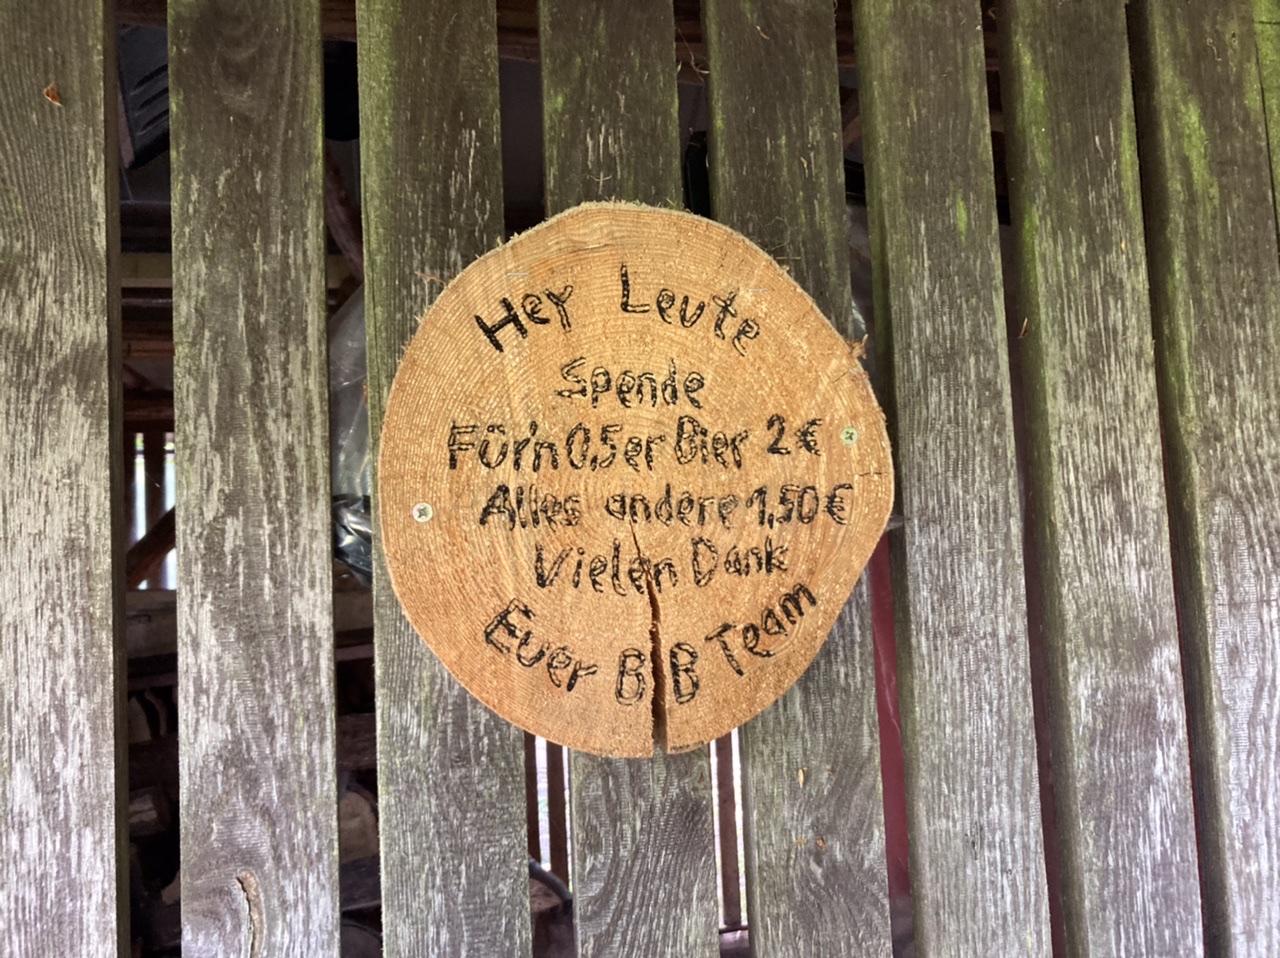 Hey Leute
Spende
Für'n 0,5er Bier 2€
Alles andere 1,50€
Vielen Dank
Euer BB Team